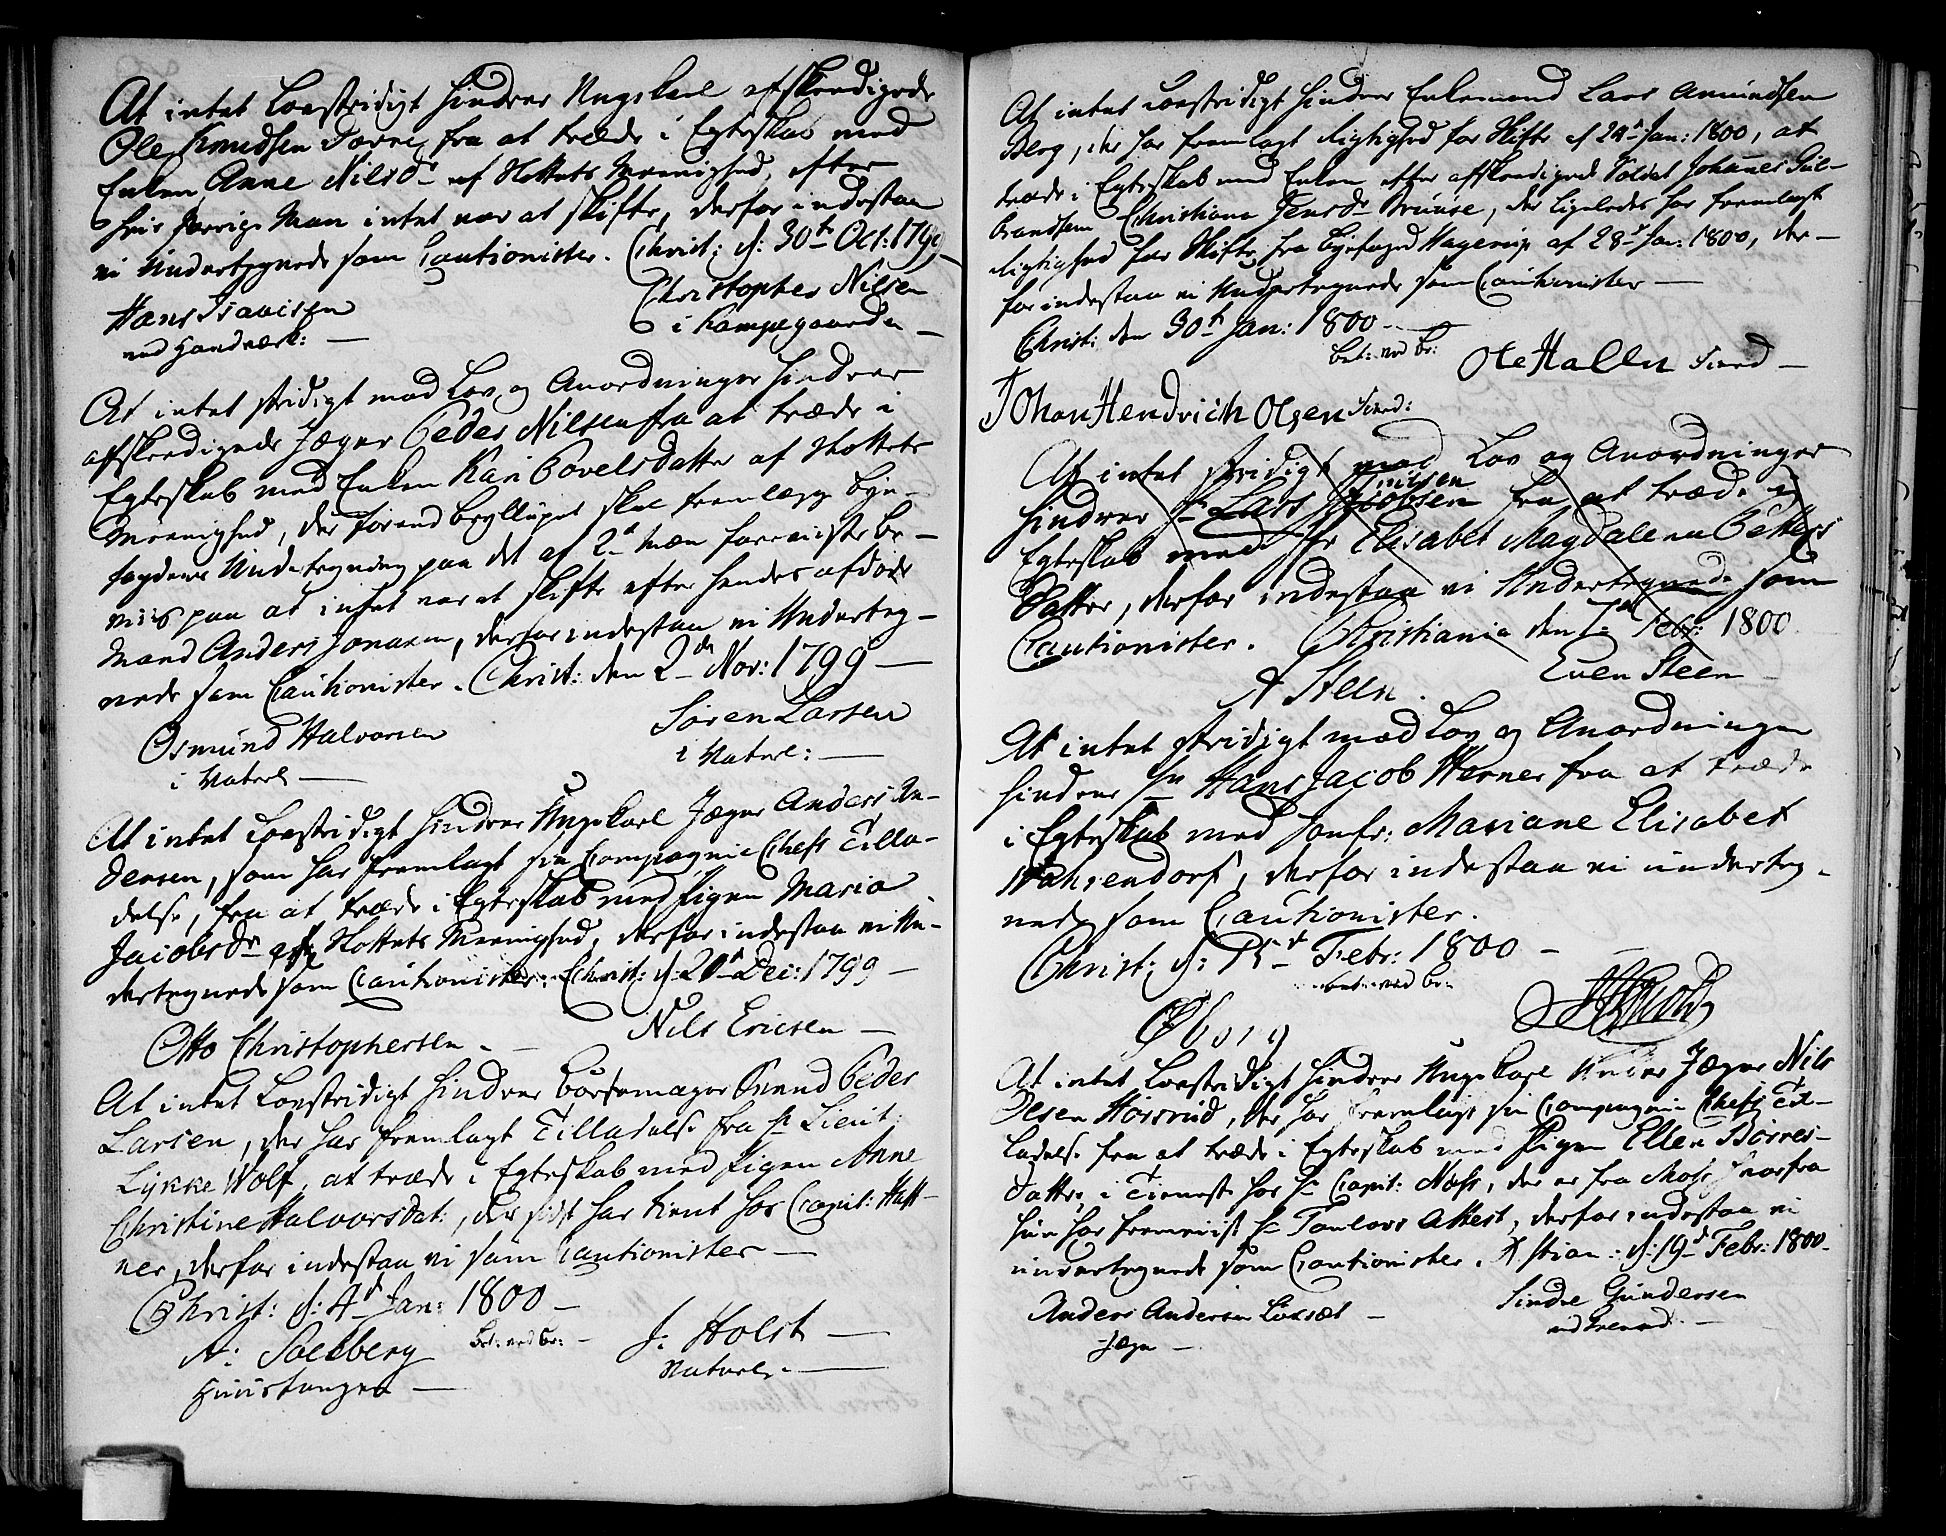 At intet Lovstridigt hindrer Ungekarl afskeediged
Ole Knudsen fra at træde i Egteskab med
Enken Anne Nilsdr af Slottets Meenighed, efter
hvis forrige Man intet var at skifte, derfor indestaa
vi Undertegnede som Cautionister. Christ: d: 30te Oct: 1799
Hans Isaacsen
Christopher Nilsen
ved Handverk:
i Kampegaarden
At intet stridigt mod Lov og Anordninger hindrer
afskeedigede Jæger Peder Nilsen fra at træde i
Egteskab med Enken Kari Povelsdatter af Slottets
Meenighed, der forend Brylluppet skal fremlægge Bye-
fogdens Undertegning paa det af 2de Mæn foreviste Be-
viis paa at intet var at skifte efter hendes afdøde
Mand Anders Jonasen, derfor indestaa vi Underteg-
nede som Cautionister. Christ: den 2den Nov: 1799
Osmund Halvorsen
Søren Larsen
i Vaterl
i Vaterl:
At intet Lovstridigt hindrer Ungekarl Jæger Anders An-
dersen, som har fremlagt sin Compagnie Chefs Tilla-
delse, fra at træde i Egteskab med Pigen Maria
Jacobsdr af Slottets Meenighed, derfor indestaa vi Un-
dertegnede som Cautionister. Christ: d: 20d Dec: 1799
Otto Christophersen.
Nils Ericsen
At intet Lovstridigt hindrer Børsemager Svend Peder
Larsen, der har fremlagt Tilladelse fra Hr Lieut:
Lykke Wolf, at træde i Egteskab med Pigen Anne
Christine Halvorsdat:, der sidst har tient hos Capit: Haff-
ner, derfor indestaa vi som Cautionister
Christ: d: 4d Jan: 1800
A: Solberg
bet: ved Br:
J. Holst
Vaterl.
At intet Lovstridigt hindrer Enkemand Lars Amundsen
Berg, der har fremlagt Rigtighed for Skifte af 24d Jan: 1800, at
træde i Egteskab med Enken efter afskeediget Soldat Johannes Gul-
brandsen Christiane Jensdr Bruuse, der ligeledes har fremlagt
Rigtighed for Skifte fra Byefoged Hagerup af 28d Jan: 1800, der-
for indestaa vi Undertegnede som Cautionister
Christ: den 30te Jan: 1800
bet: ved Br:
Ole Hallen
Johan Hendrich Olsen
At intet stridigt mod Lov og Anordninger
Nilsen
hindrer Hr Lars Jacobsen fra at træde i
Egteskab med Jfr Elisabet Magdalena Petters
Datter, derfor indestaa vi Undertegnede som
Cautionister. Christiania den 7de Febr: 1800
Even Steen
A Steen.
At intet stridigt mod Lov og Anordninger
hindrer Hr Hans Jacob Werner fra at træde
i Egteskab med Jomfr: Mariane Elisabet
Wahrendorf, derfor indestaa vi underteg-
nede som Cautionister.
Christ: d: 15d Febr: 1800
bet: ved Br:
At intet Lovstridigt hindrer Ungekarl Jæger Nils
Olsen, der har fremlagt sin Compagnie Chefs Til-
ladelse fra at træde i Egteskab med Pigen Ellen Børres-
datter, i Tieneste hos Hr Capit: Næss, der er fra Moss, hvorfra
hun har fremviist Hr Taulovs Attest, derfor indestaa vi
undertegnede som Cautionister. Xstian: d: 19d Febr: 1800
Anders Andersen
Sindre Gundersen
Jæger